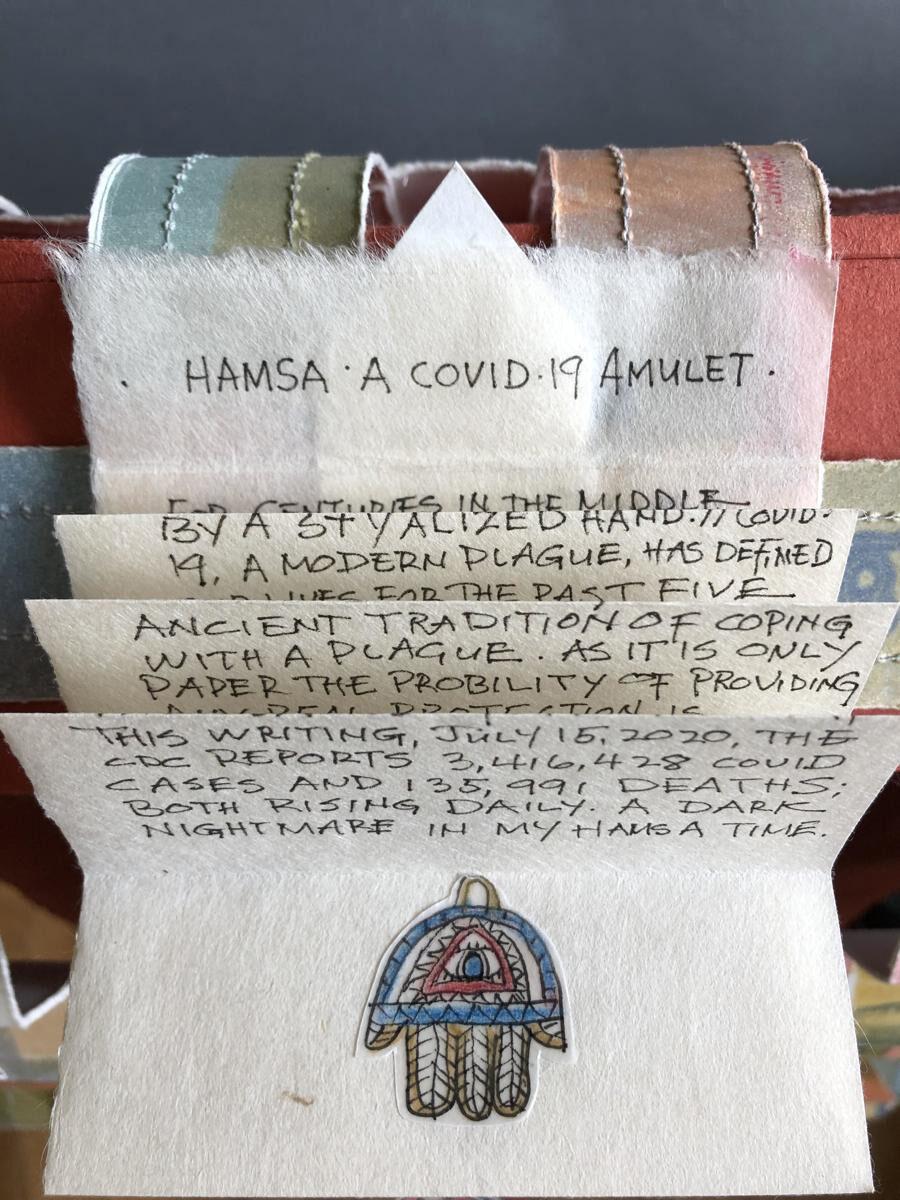 · HAMSA · A COVID·19 AMULET ·
FOR CENTURIES IN THE MIDDLE
BY A STYALIZED HAND.// COVID·
19, A MODERN PLAGUE, HAS DEFINED
LIVES FOR THE PAST FIVE
ANCIENT TRADITION OF COPING
WITH A PLAGUE. AS IT IS ONLY
PAPER THE PROBILITY OF PROVIDING
REAL PROTECTION IS
THIS WRITING, JULY 15, 2020, THE
CDC REPORTS 3,416,428 COUID
CASES AND 135,991 DEATHS;
BOTH RISING DAILY. A DARK
NIGHTMARE IN MY HAMSA TIME.